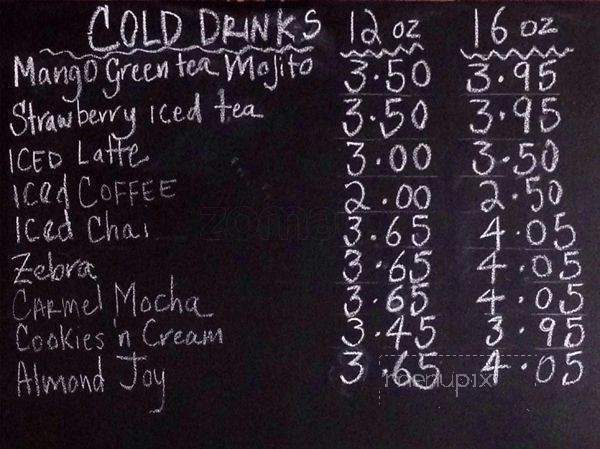 COLD DRINKS 12 oz 16 oz
Mango Green tea Mojito 3.50 3.95
Strawberry iced tea 3.50 3.95
ICED Latte 3.00 3.50
Iced COFFEE 2.00 2.50
Iced Chai 3.65 4.05
Zebra 3.65 4.05
CARMel Mocha 3.65 4.05
Cookies 'n Cream 3.45 3.95
Almond Joy 3.65 4.05
menupix